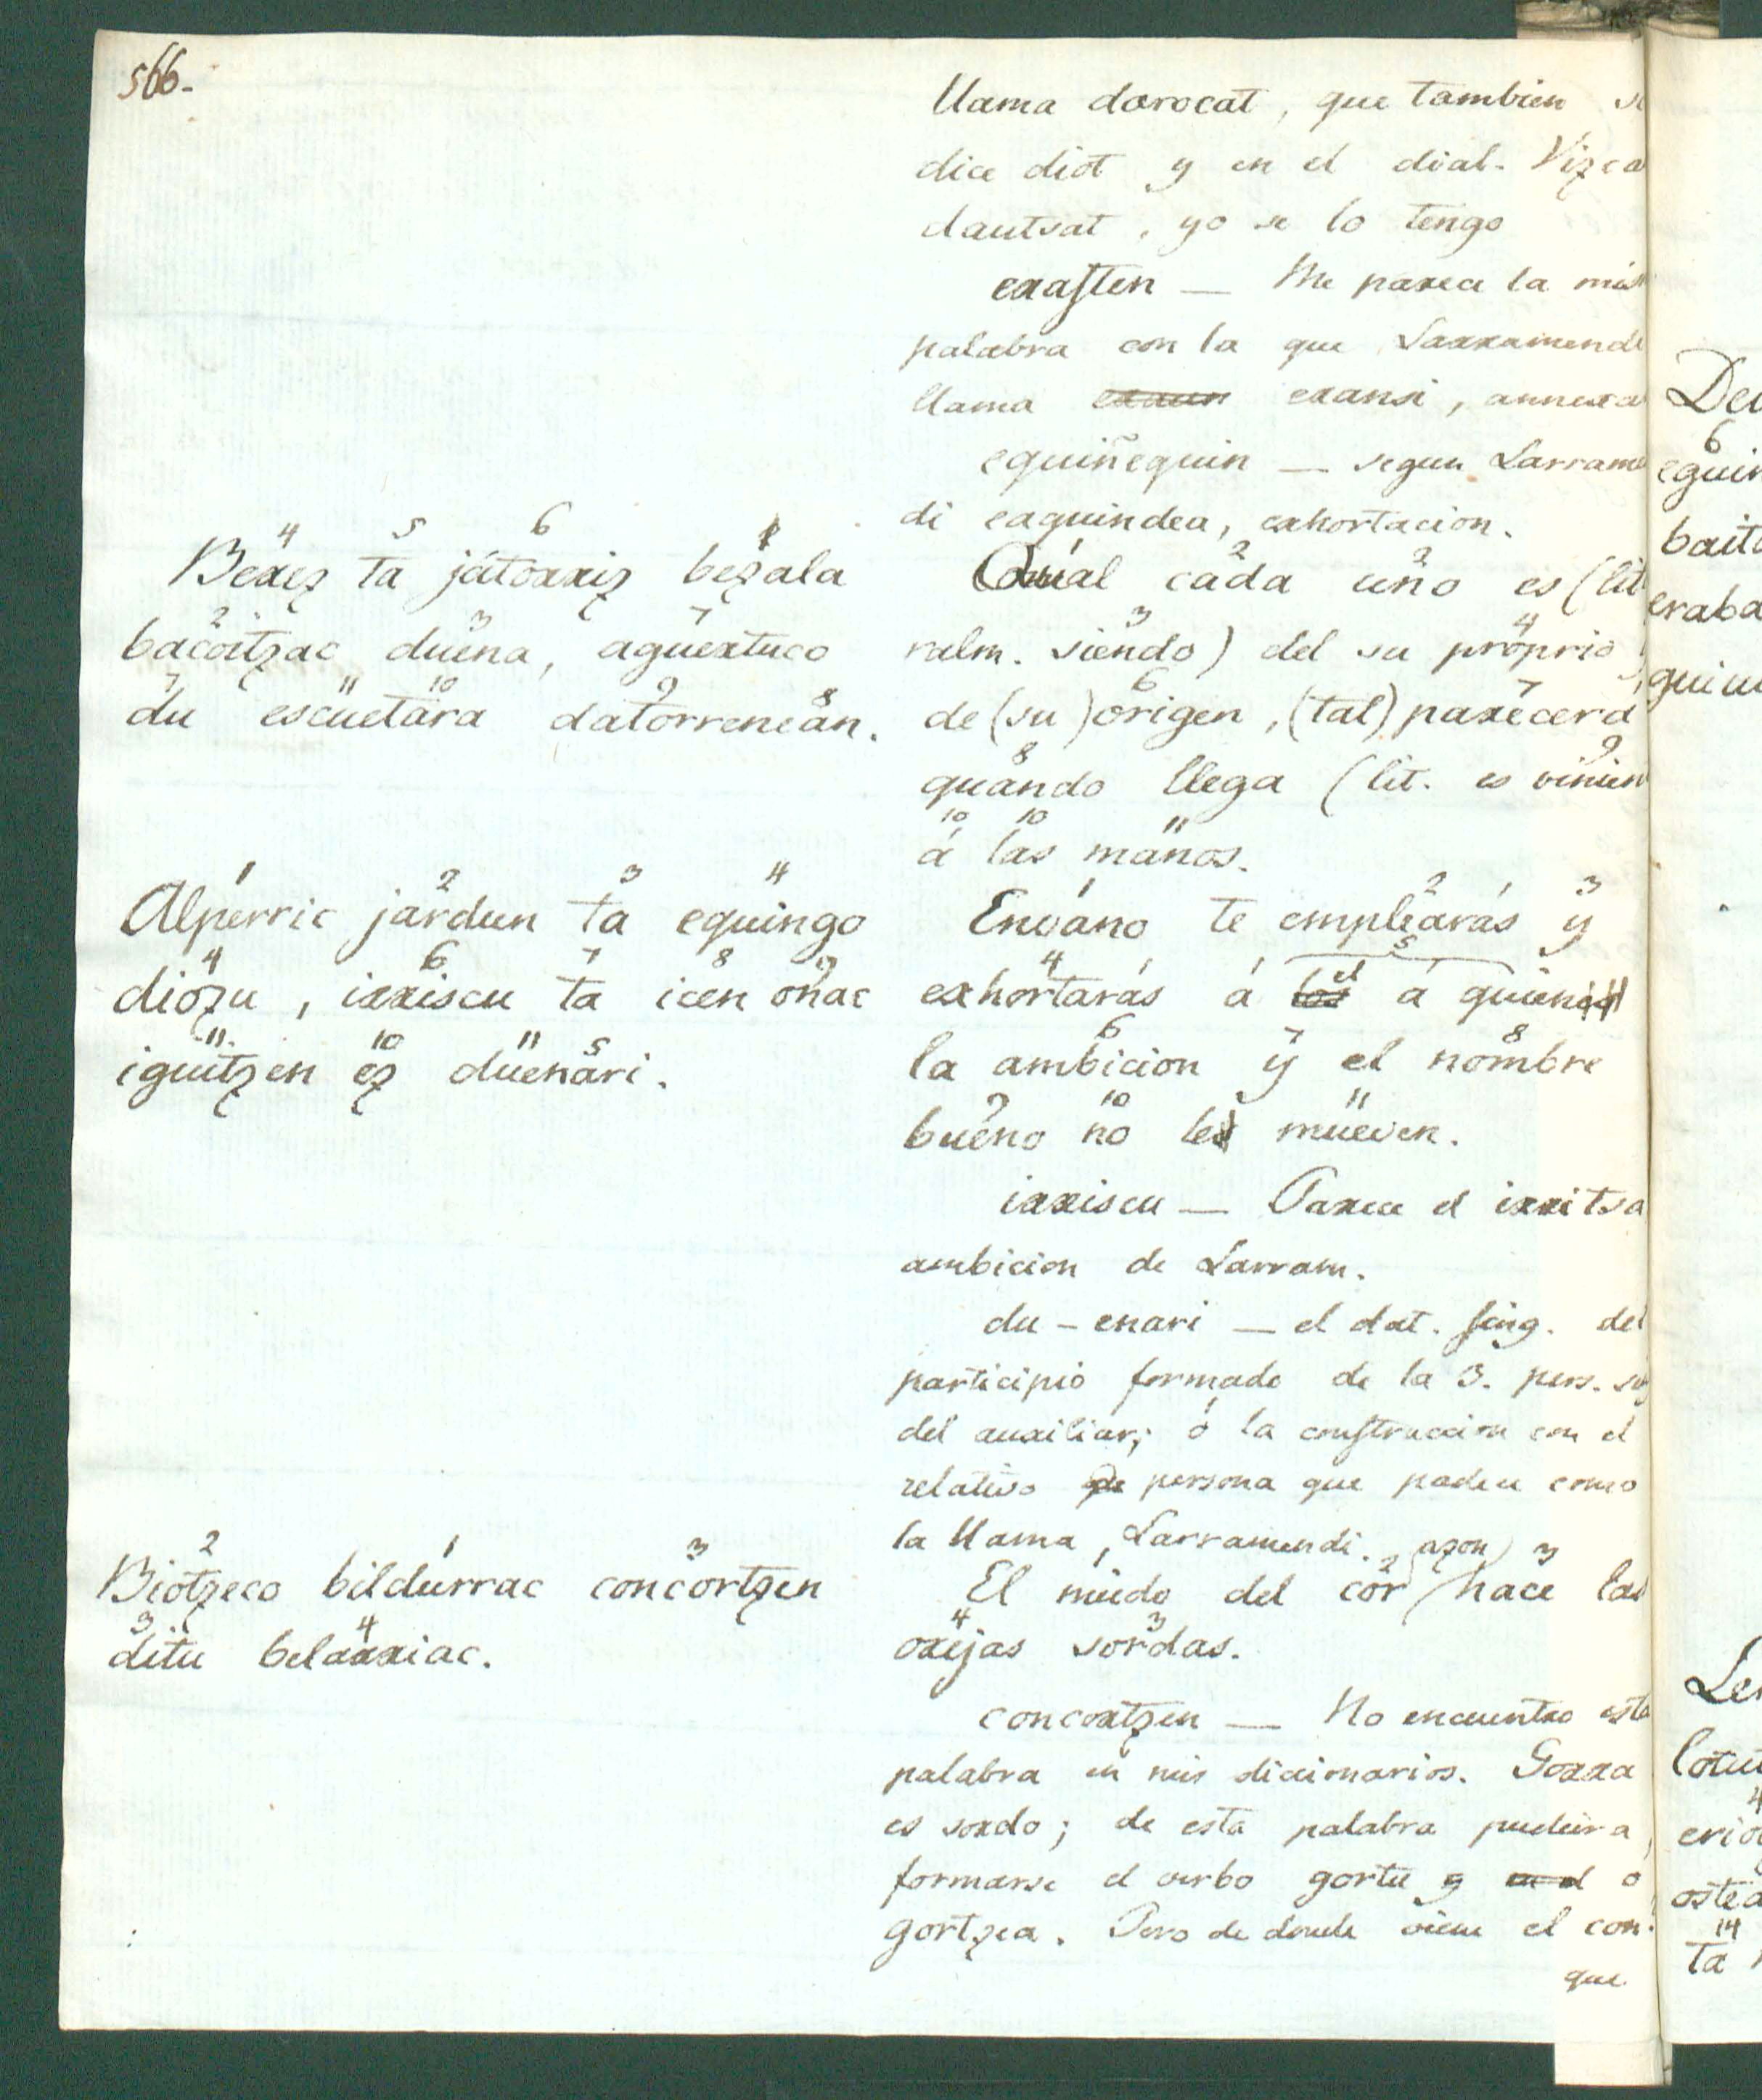 566.
llama darocat, que tambien
dice diot y en el dial. Vizca
dautsat, yo se lo tengo
erasten — Me parece la mis
palabra con la que Larramendi
llama eransi, annexa
equiñequin — segun Larrame
di eaguindea, exhortacion.
4 5 6 1
Berez ta jatorriz bezala
2 3 7
bacoitzac duena, aguertuco
7 11 10 9 8
du escuetara datorrenean.
1 2 2
Qual cada uno es (lit
3 4
ralm. siendo) del su proprio
6 7
de (su) origen, (tal) parecerá
8 9
quando llega (lit. es vinien
10 10 11
á las manos.
1 2 3 4
Alperric jardun ta equingo
4 6 7 8 9
diozu, irriscu ta icen onac
11 10 11 5
iguitzen ez duenari.
1 2 3
Envano te emplearás y
4 5
exhortarás á el á quien
6 7 8
la ambicion y el nombre
9 10 11
bueno no le mueven.
irriscu — Parece el irritsa
ambicion de Larram.
du-enari — el dat. sing. del
participio formado de la 3. pers. sin
del auxiliar; ó la construccion con el
relativo de persona que padece como
la llama Larramendi.
2 1 3
Biotzeco bildurrac concortzen
3 4
ditu belarriac.
1 2 (azon) 3
El miedo del cor hace las
4 3
orejas sordas.
concortzen — No encuentro esta
palabra en mis diccionarios. Gorra
es sordo; de esta palabra pudiera
formarse el verbo gortu y o
gortzea. Pero de donde viene el con?
que